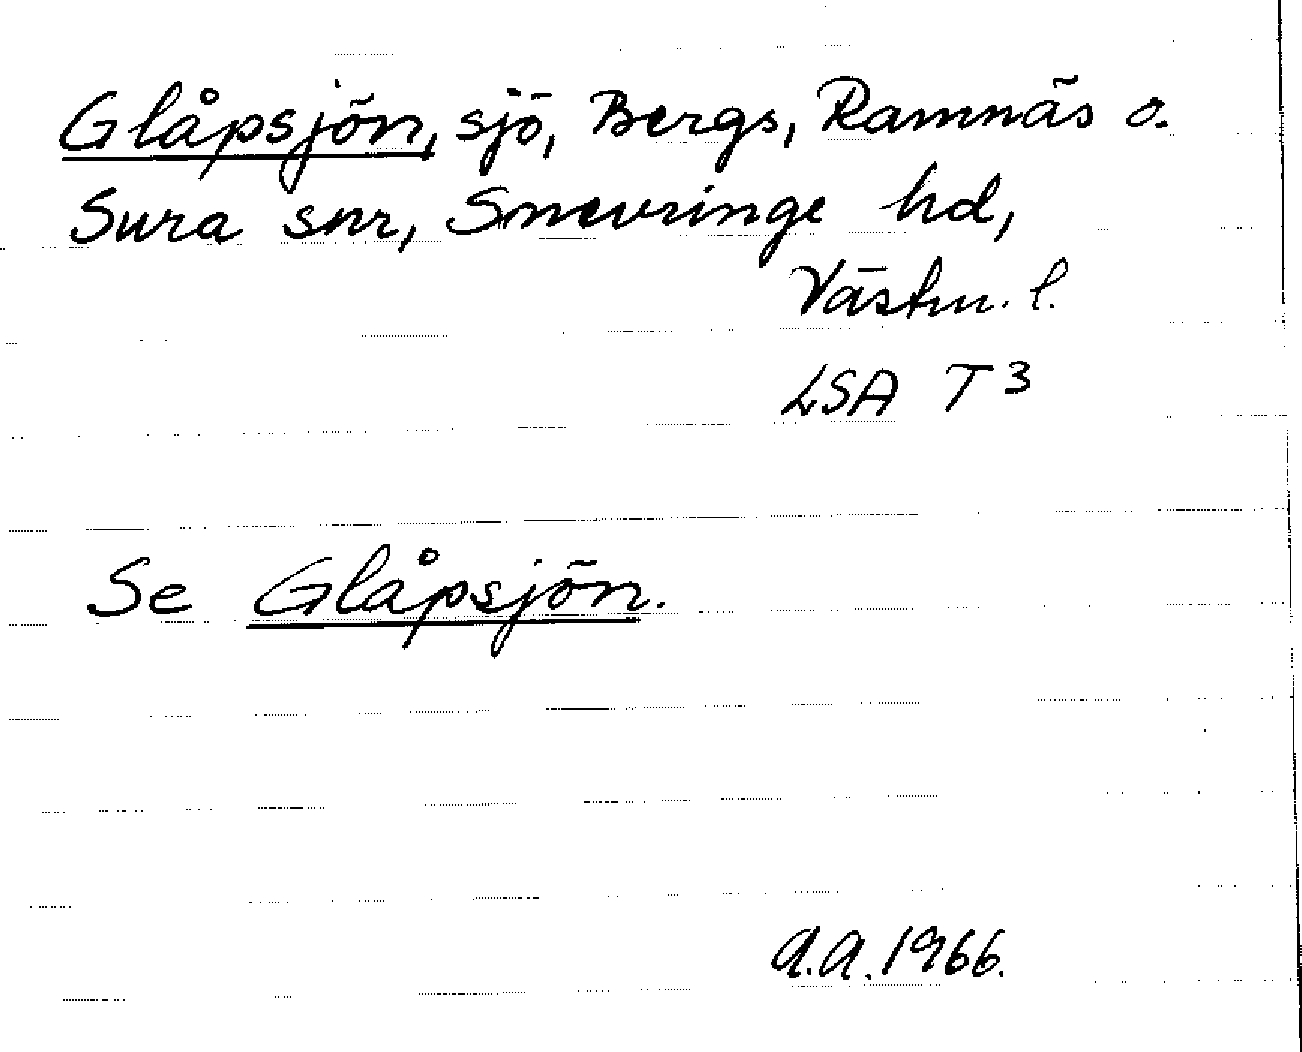 Glåpsjön, sjö, Bergs, Ramnäs o.
Sura snr, Snevringe hd,
Västm. l.
LSA T 3
Se Glåpsjön.
A.A. 1966.